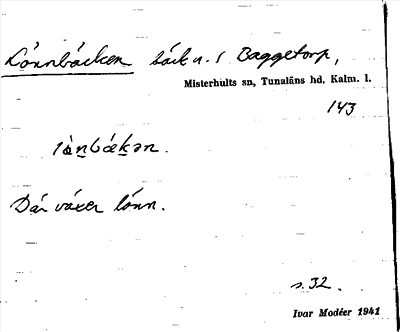 Lönnbäcken bäck n. i Baggetorp,
Misterhults sn, Tunaläns hd, Kalm. l.
143
lö̀nbækən.
Där växer lönn.
s. 32.
Ivar Modéer 1941